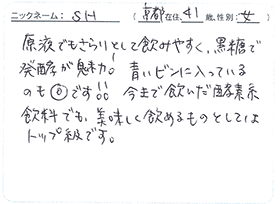 ニックネーム: SH （京都在住、41歳、性別: 女）
原液でもさらりとして飲みやすく、黒糖で
発酵が魅力! 青いビンに入っている
のも◎です!! 今まで飲んだ酵素系
飲料でも、美味しく飲めるものとしては
トップ級です。